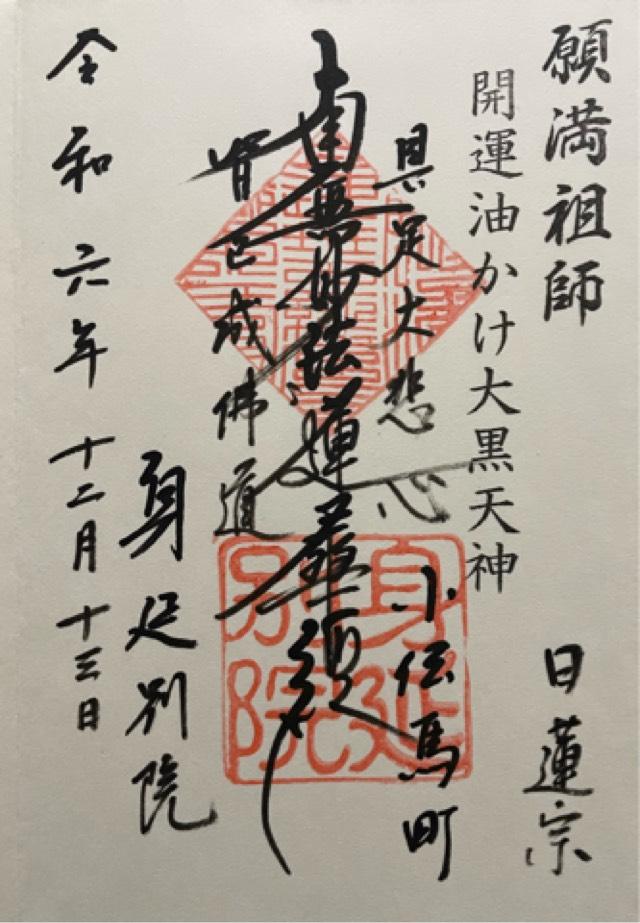 願満祖師
日蓮宗
開運油かけ大黒天神
具足大悲心
小伝馬町
南無妙法蓮華経
皆已成佛道
身延別院
令和六年十二月十三日
身延別院